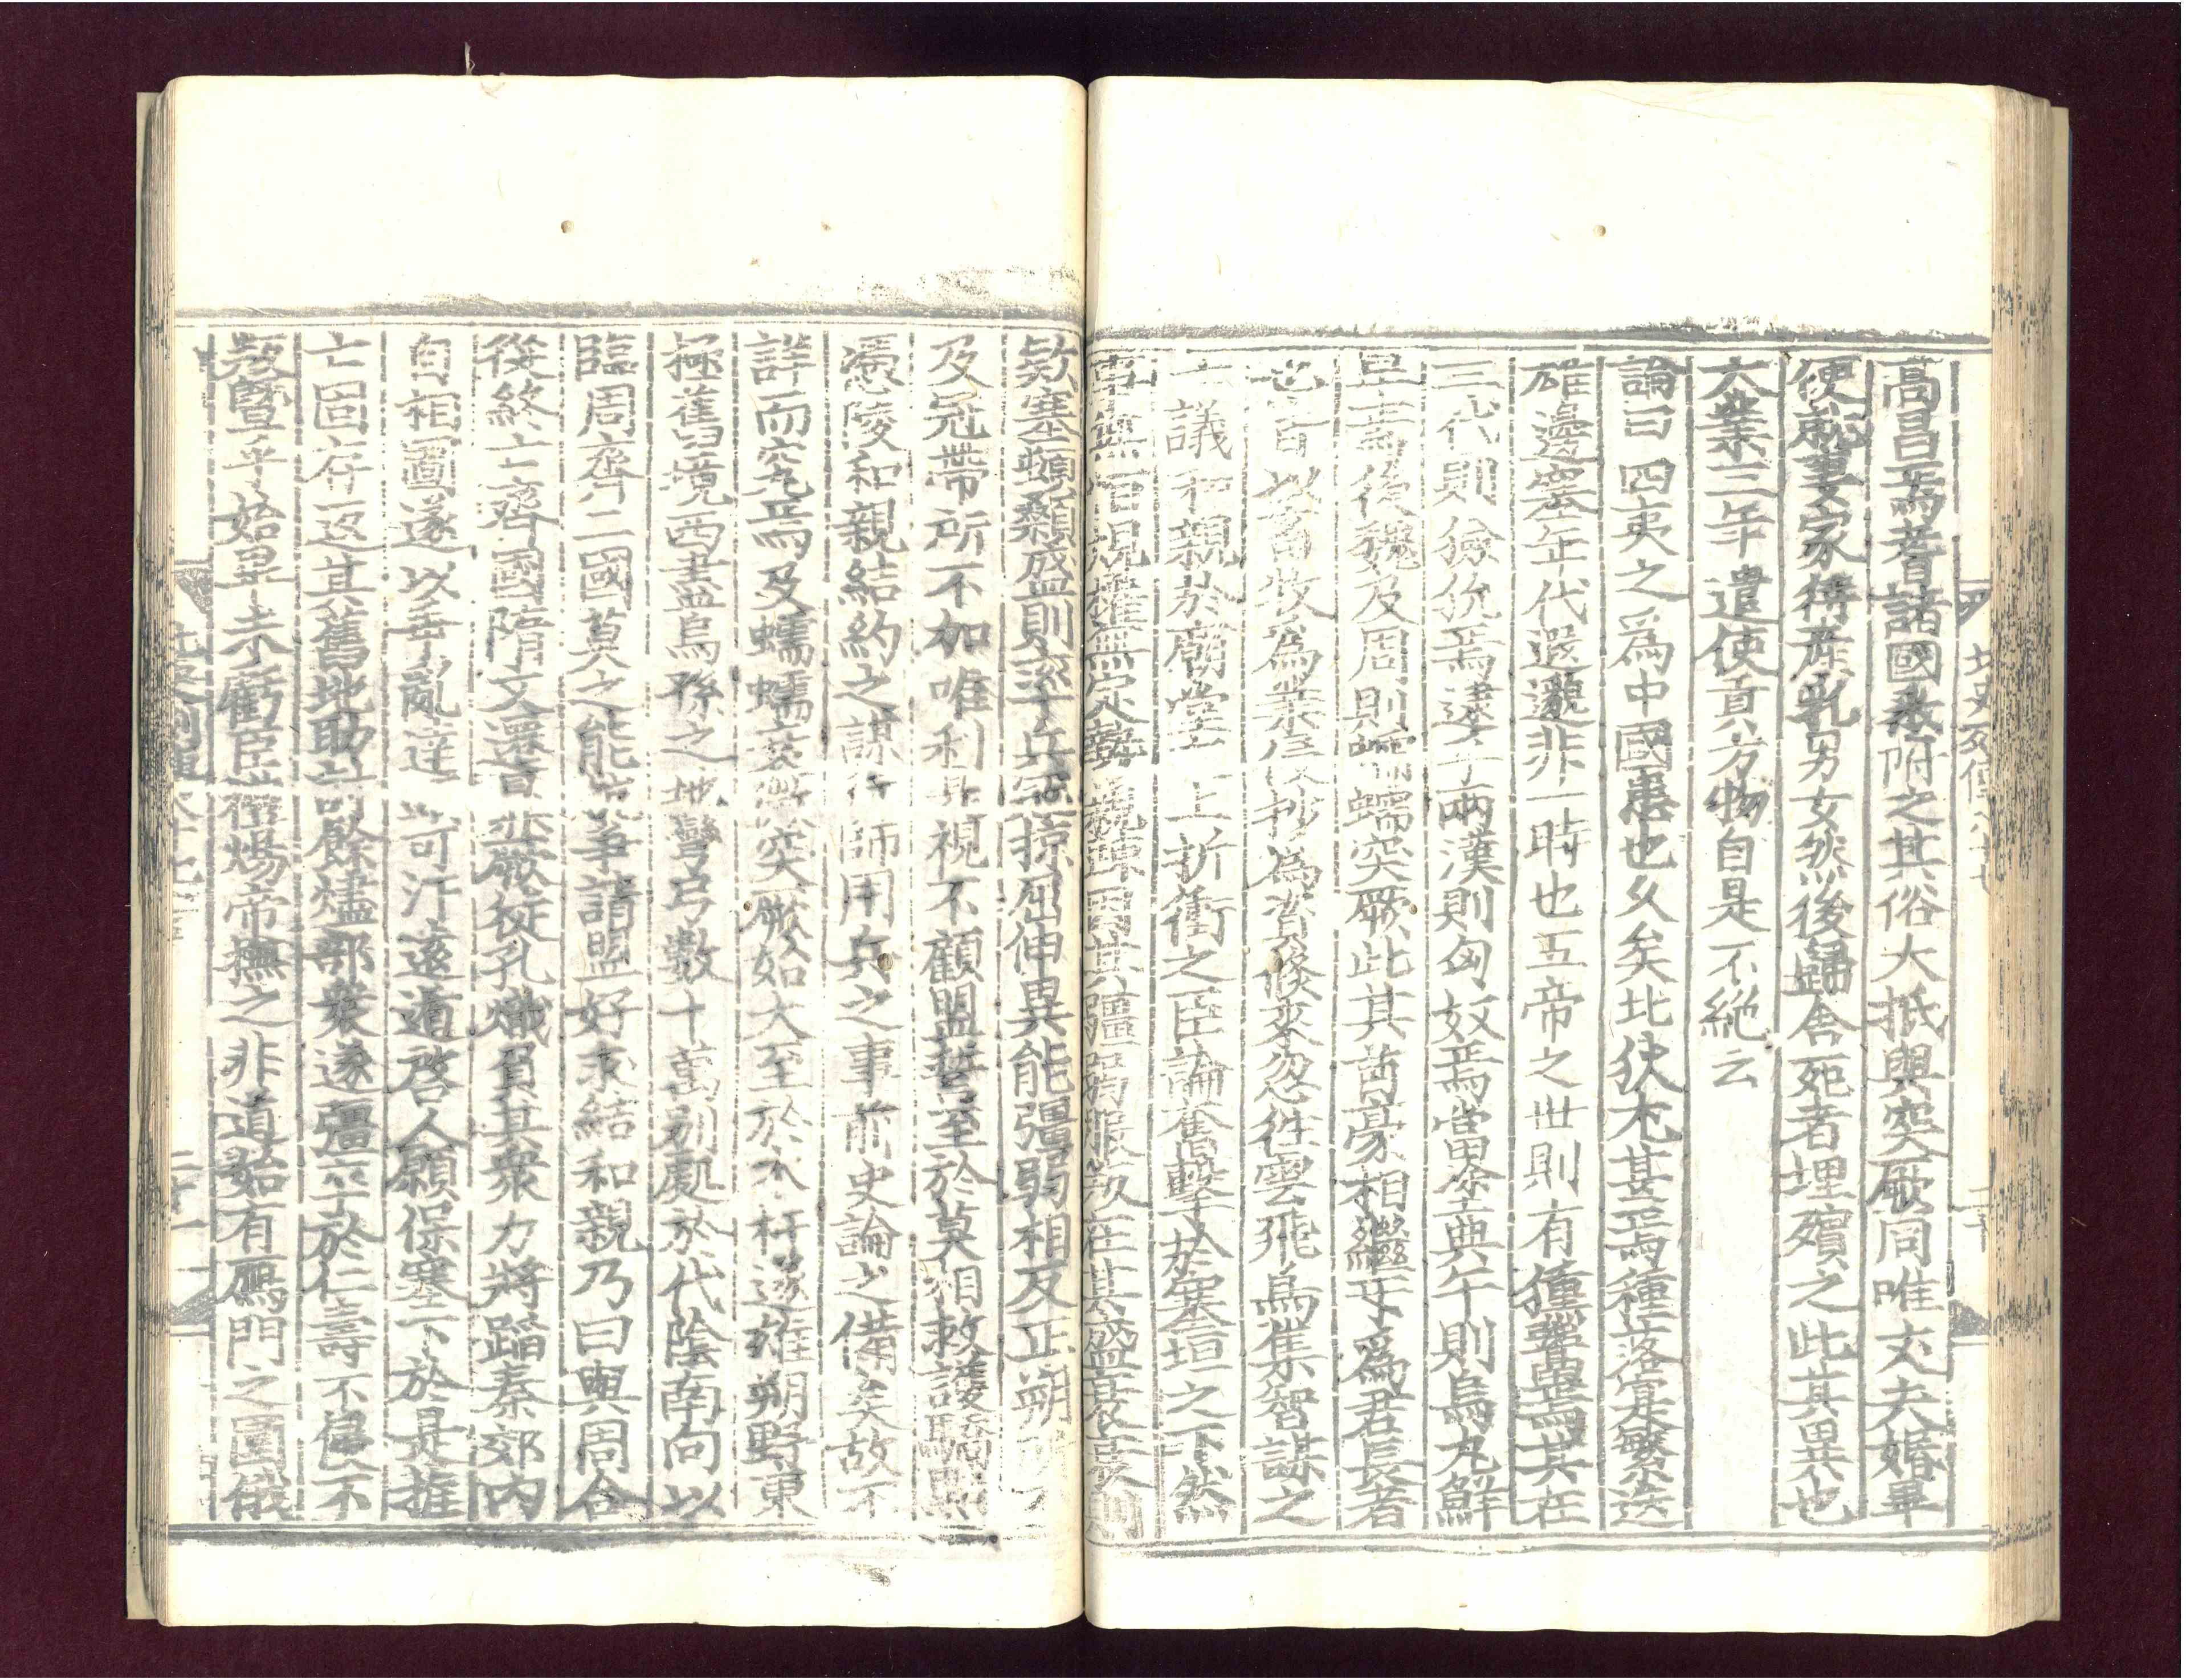 高昌焉耆諸國叅附之其俗大抵與突厥同唯丈夫婚畢
便就妻家待產乳男女然後歸舍死者埋殯之此其異也
大業三年遣使貢方物自是不絶云
論曰四夷之爲中國患也久矣北狄尤甚焉種落寔繁迭
雄邊塞年代遐邈非一時也五帝之世則有獯鬻焉其在
三代則獫狁焉逮乎兩漢則匈奴焉當塗典午則烏丸鮮
卑焉後魏及周則蠕蠕突厥此其酋豪相繼互爲君長者
也皆以畜牧爲業侵抄爲資倐來忽往雲飛鳥集智謀之
士議和親於廟堂之上折衝之臣論奮擊於塞垣之下然
事無恒規權無定勢親疎因其彊弱服叛在其盛衰衰則
欵塞頓顙盛則率兵寇掠屈伸異能彊弱相反正朔所不
及冠帶所不加唯利是視不顧盟誓至於莫相救護驕黠
憑陵和親結約之謀行師用兵之事前史論之備矣故不
詳而究焉及蠕蠕衰微突厥始大至於木杆遂雄朔野東
極舊境西盡烏孫之地彎弓數十萬别處於代陰南向以
臨周齊二國莫之能抗爭請盟好求結和親乃曰與周合
從終亡齊國隋文遷鼎厥徒孔熾負其衆力將蹈秦郊内
自相圖遂以乖亂達頭可汗遠遁啓人願保塞下於是推
亡固存返其舊地助討餘燼部衆遂彊卒於仁壽不侵不
叛暨乎始畢未虧臣禮煬帝撫之非道始有鴈門之圍俄